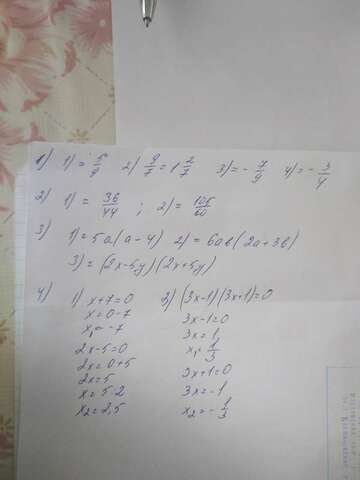 1) 1) = 5/9 2) 9/7 = 1 2/7 3) = - 7/9 4) = - 3/4
2) 1) = 36/44 ; 2) = 105/60
3) 1) = 5a(a-4) 2) = 6ab(2a+3b)
3) = (2x-5y)(2x+5y)
4) 1) x+7=0
x=0-7
x₁=-7
2x-5=0
2x=0+5
2x=5
x=5:2
x₂=2,5
2) (3x-1)(3x+1)=0
3x-1=0
3x=1
x₁=1/3
3x+1=0
3x=-1
x₂=-1/3